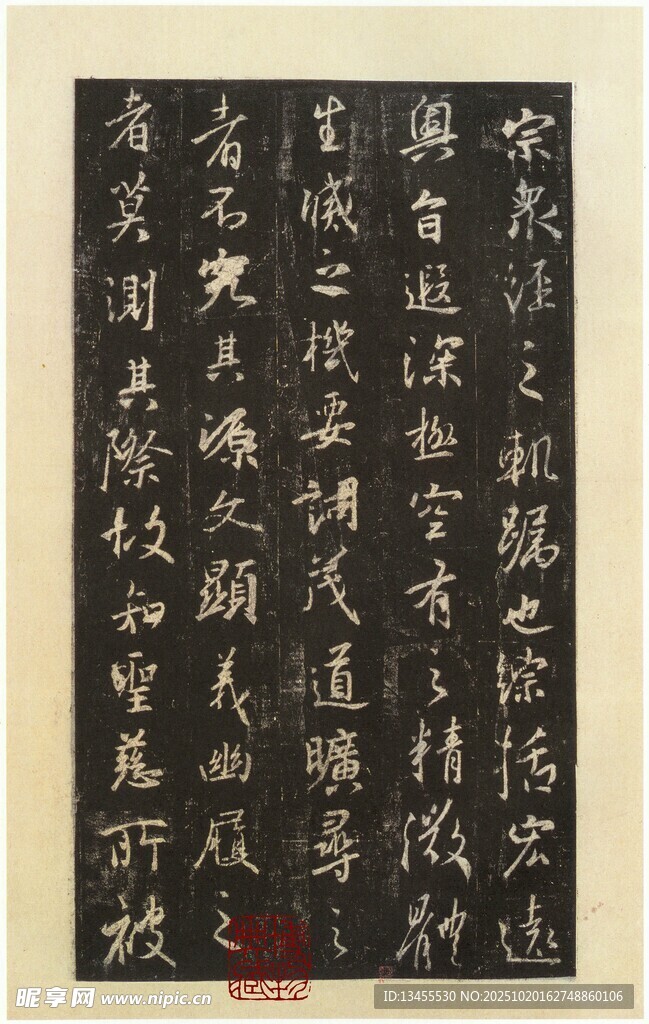 宗衆經之軌躅也綜括宏遠
奧旨遐深極空有之精微體
生滅之機要詞茂道曠尋之
者不究其源文顯義幽履之
者莫測其際故知聖慈所被
昵享网 www.nipic.cn
ID:13455530 NO:20251020162748860106